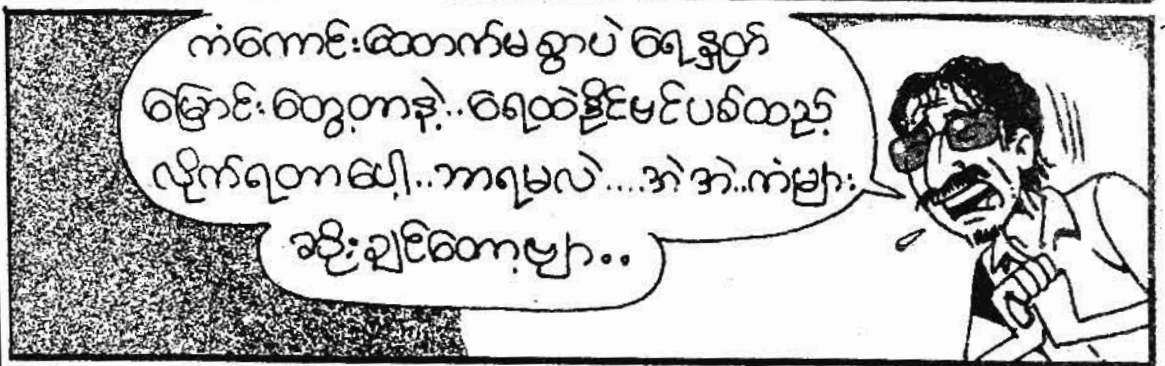 ကံကောင်းထောက်မစွာပဲ ရေနှုတ်
မြောင်းတွေ့တာနဲ့..ရေထဲနိုင်မင်ပစ်ထည့်
လိုက်ရတာပေါ့..ဘာရမလဲ....အဲအဲ..ကံများ
ဆိုးချင်တော့ဗျာ..